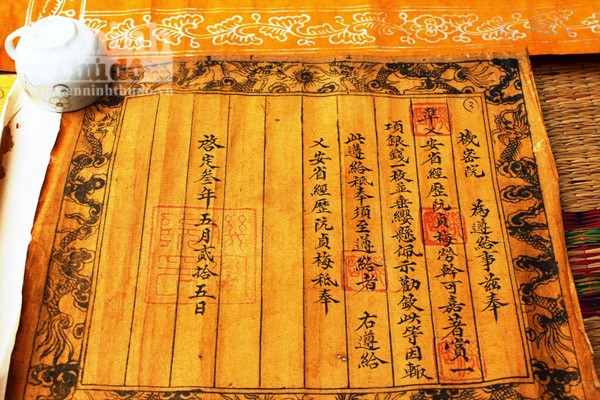 ③
機密院 為遵給事茲奉
準乂安省經歷阮貞梅勞幹可嘉著賞一
項銀錢一枚並垂纓懸佩示勸欽此等因輙
此遵給祇奉須至遵給者 右遵給
乂安省經歷阮貞梅祇奉
啓定叁年五月貳拾五日